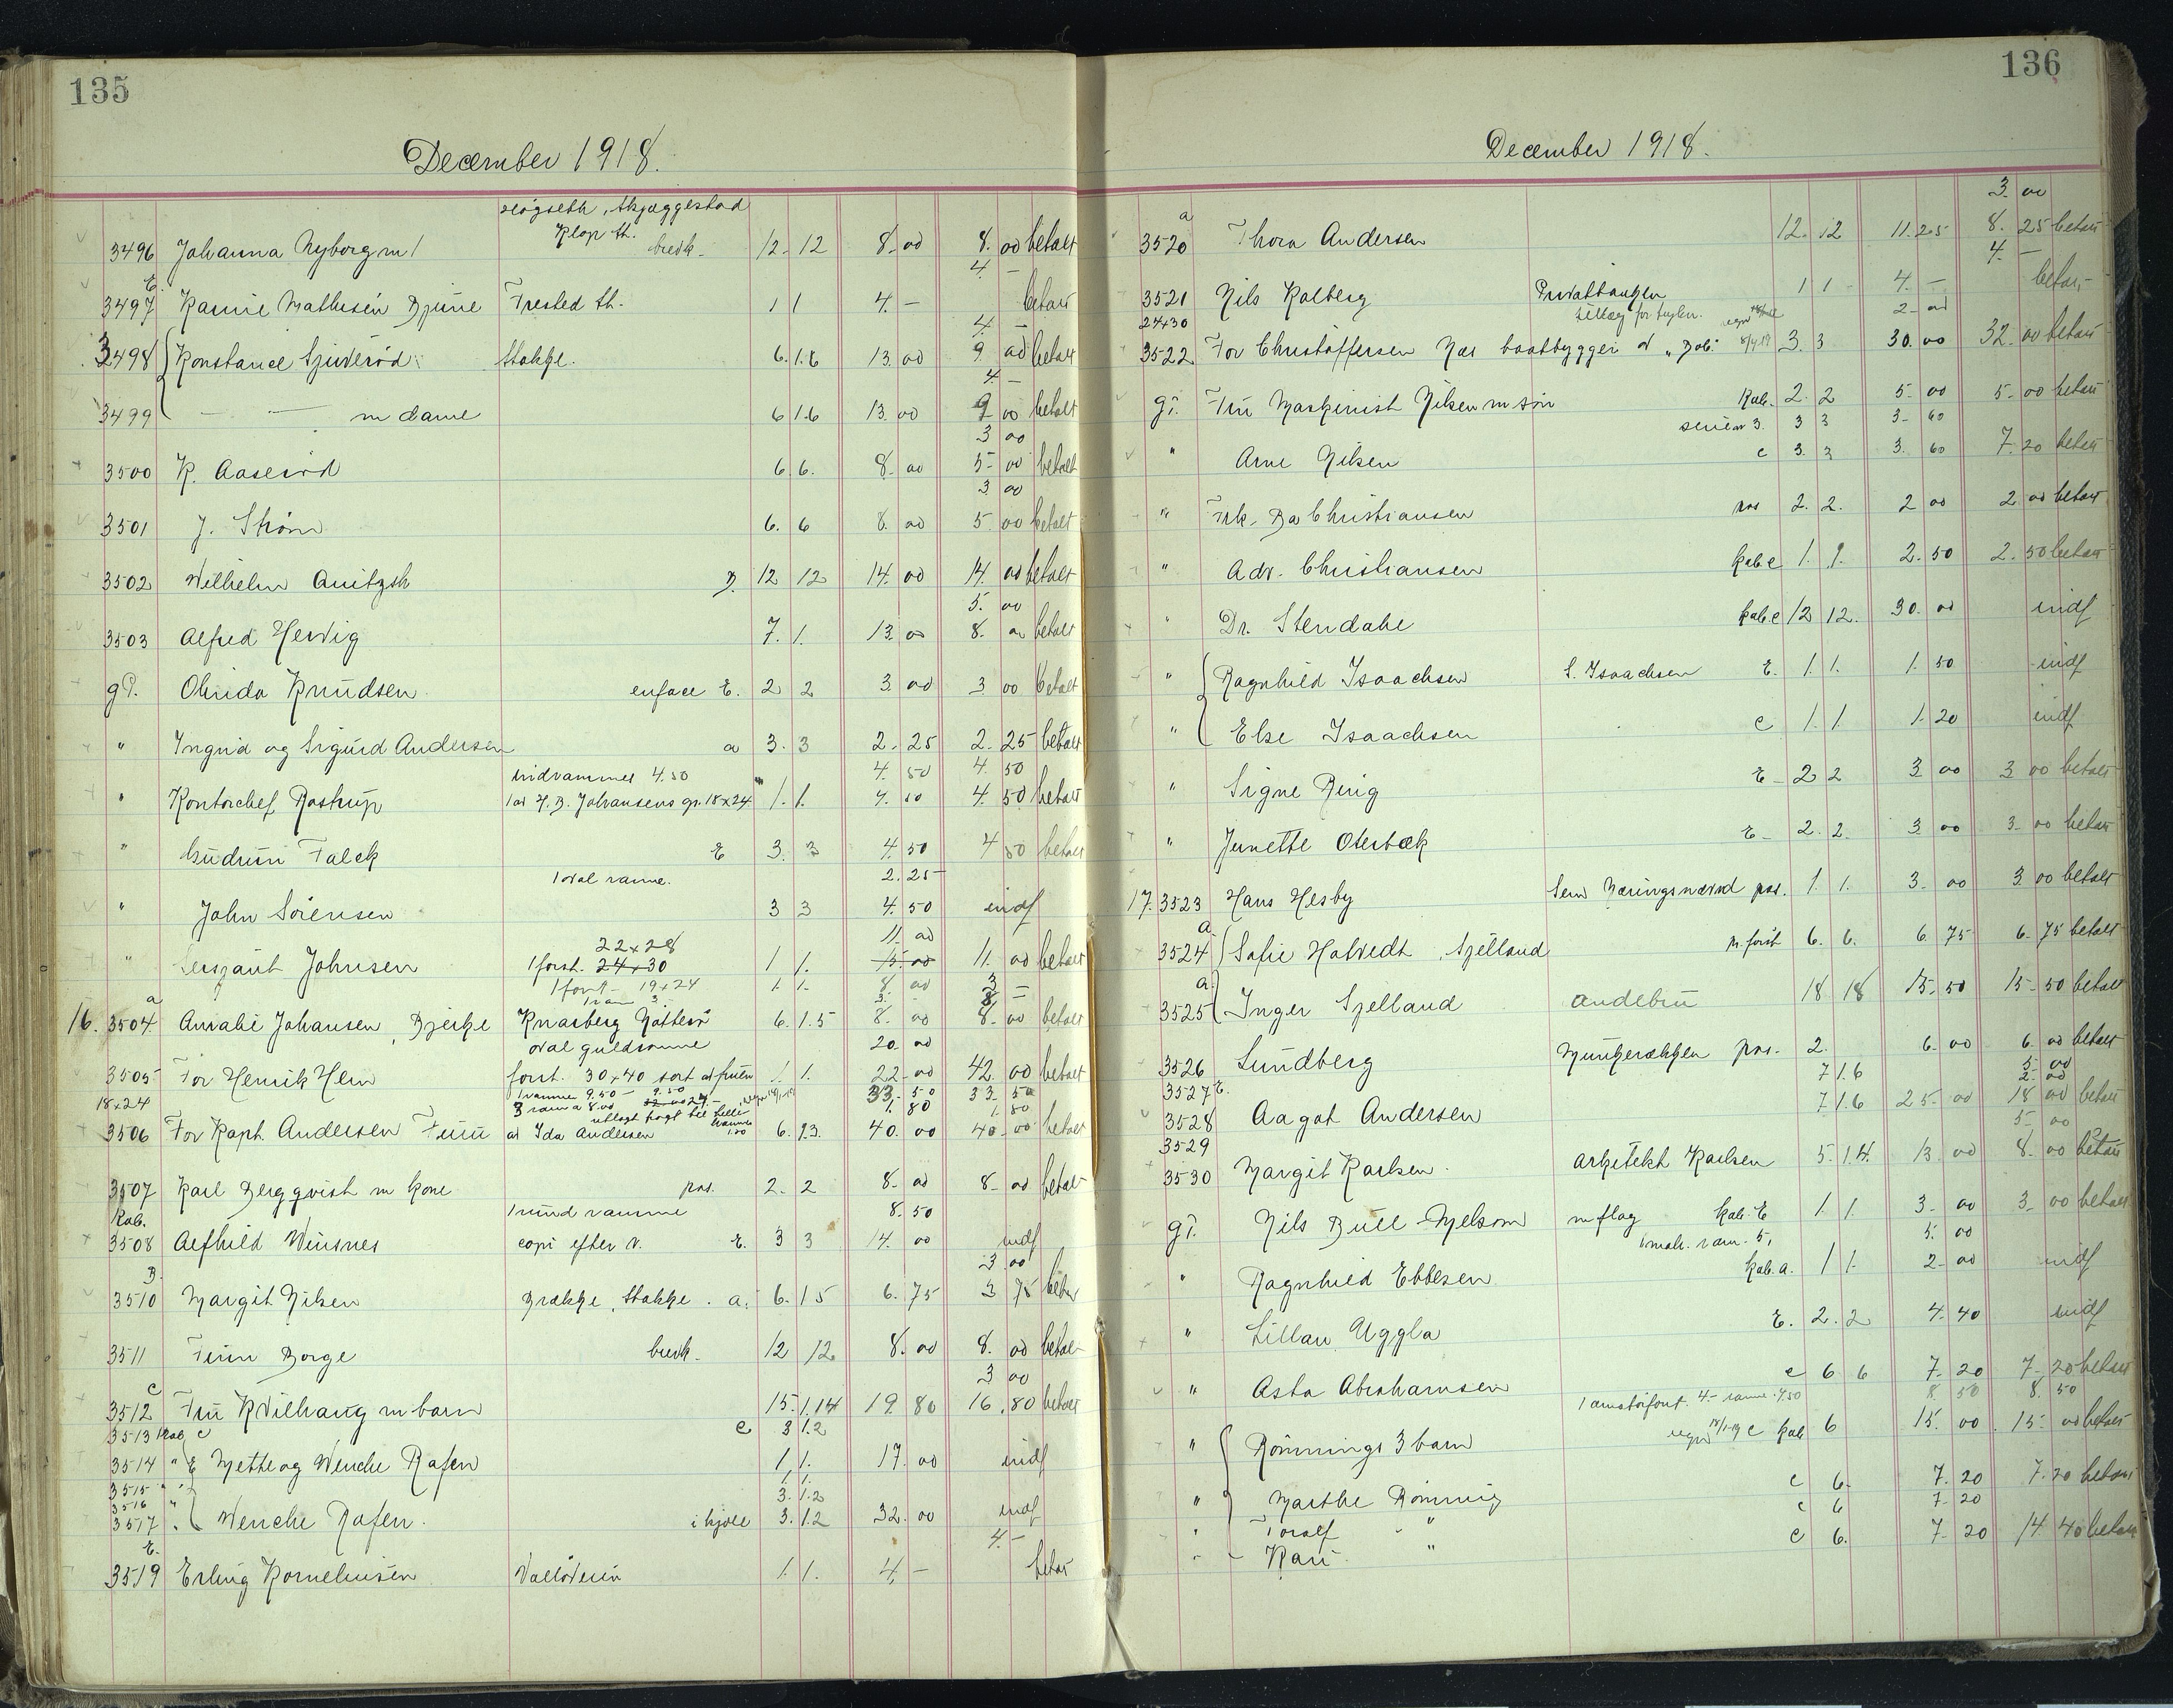 135
December 1918.
Skjæggestad
3496 Johanna Nyborg m/ Klop st. brevk. 12. 12 8. 00 8. 00 betalt
4. –
E
3497 Kamie Mathisen Bjune Frested st. 1 1 4. – betalt
4. –
3498 Konstance Sjuverød Stokke. 6. 1.6 13. 00 9. 00 betalt
4. –
3499 – — m dame 6 1.6 13. 00 9 00 betalt
3 00
3500 K. Aaserød 6 6. 8. 00 5. 00 betalt
3. 00
3501 J. Strøm 6. 6 8. 00 5. 00 betalt
3502 Wilhelm Anitzsh B. 12 12 14. 00 14. 00 betalt
5. 00
3503 Alfred Hervig 7. 1. 13. 00 8. 00 betalt
gl. Olinda Knudsen enface E. 2 2 3. 00 3 00 betalt
" Ingrid og Sigurd Andersen a 3. 3 2. 25 2. 25 betalt
endrammer 4.50 4. 50 4. 50
" Kontorchef Rostrup 1 av H. B. Johansens gr. 18x24 1. 1. 4. 50 4. 50 betalt
" Gudrun Falck E 3. 3 4. 50 4 50 betalt
1 oval ramme. 2. 25
" John Sörensen 3 3 4. 50 indf
22x28 11. 00
" Sersjant Johnsen 1 forst. 24x30 1 1. 15. 00 11. 00 betalt
1 forst – 19x24 1. 1. 8. 00 3 –
1 ram 3. 3. 8. –
a
16. 3504 Amalie Johansen, Bjerke Knarberg Nötterö 6. 1.5 8. 00 8. 00 betalt
oval guldramme 20. 00
3505 For Henrik Hem forst. 30x40 sort af fruen 1. 1. 22. 00 42. 00 betalt
1 ramme 9.50 – 9.50 33. 50 33. 50
18x24 3 rama 8.00 1. 80 1. 80
3506 For Kapt. Andersen Frue af Ida Andersen 6. 1.3. 40. 00 40. 00 betalt
3507 Karl Bergqvist m kone pos. 2. 2 8. 00 8. 00 betalt
Kab. 1 rund ramme 8. 50
3508 Alfhild Winsnes copi efter N. E. 3 3 14. 00 indf
3. 00
B.
3510 Margit Nilsen Brække, Stokke. a. 6. 1 5 6. 75 3 75 betalt
3511 Finn Borge brevk. 12 12. 8. 00 8. 00 betalt
3 00
c
3512 Fru Kvilhaug m barn 15. 1.14 19. 80 16. 80 betalt
3513 Kab c c 3 1.2
3514 " E Mette og Wenche Rafen 1 1. 17. 00 indf
3515 " " 1. 1.
3516 " 3. 1.2
3517 " Wenche Rafen. i kjole 3. 1.2 32. 00 indf
4. –
E.
3519 Erling Korneliusen Vallöveien 1. 1. 4. – betalt
136
December 1918.
3. 00
a
3520 Thora Andersen 12. 12 11. 25 8. 25 betalt
4. –
3521 Nils Kolberg Privatbanken 1 1 4. – betalt
24x30 tillæg for fuglen. 2. 00
3522 For Christoffersen Næs baatbyggeri af "Bob" 3. 3 30. 00 32. 00 betalt
gl. Fru Maskinist Nilsen m sön Kab. 2. 2 5. 00 5. 00 betalt
serie nr 3. 3 3 3. 60
" Arne Nilsen c 3. 3 3. 60 7. 20 betalt
" Frk. Ba Christiansen pos 2. 2. 2 00 2. 00 betalt
" Adv. Christiansen Kab c 1. 1. 2. 50 2. 50 betalt
" Dr. Stendahl Kab c 12 12. 30. 00 indf
" Ragnhild Isaachsen S. Isaachsen E. 1. 1. 1. 50 indf
" Else Isaachsen c 1. 1 1. 20 indf
" Signe Berig E – 2 2 3 00 3 00 betalt
" Jenette Oterbæk E – 2. 2. 3 00 3. 00 betalt
17. 3523 Hans Hesby Sem Næringsnævnd pos. 1. 1. 3. 00 3 00 betalt
a.
3524 Sofie Hotvedt, Sjelland m. forst 6. 6. 6. 75 6. 75 betalt
a.
3525 Inger Sjelland Andebu 18 18 15. 50 15. 50 betalt
3526 Lundberg Munkerækken pos. 2. 6. 00 6. 00 betalt
3527 E. 7 1.6 5. 00
2. 00
3528 Aagot Andersen 7 1.6 25. 00 18 00 betalt
3529 5. 00
3530 Margit Karlsen. Arkitekt Karlsen 5. 1.4. 13. 00 8. 00 betalt
gl. Nils Bull-Melsom m flag Kab. E 1. 1. 3. 00 3. 00 betalt
1 mah. ram. 5, 5. 00
" Ragnhild Ebbesen Kab. a. 1 1. 2. 00 indf
" Lillan Uggla E. 2. 2 4. 40 indf
" Asta Abrahamsen c 6 6 7. 20 7. 20 betalt
1 amatörforst. 4.– ramme 4.50 8. 50 8. 50
" Rönnings 3 barn c Kab 6 15. 00 15. 00 betalt
" Marthe Rönning c 6. 7. 20 7. 20 betalt
" Toralf – " c 6 7. 20
" – Kari – " c 6. 7. 20 14. 40 betalt